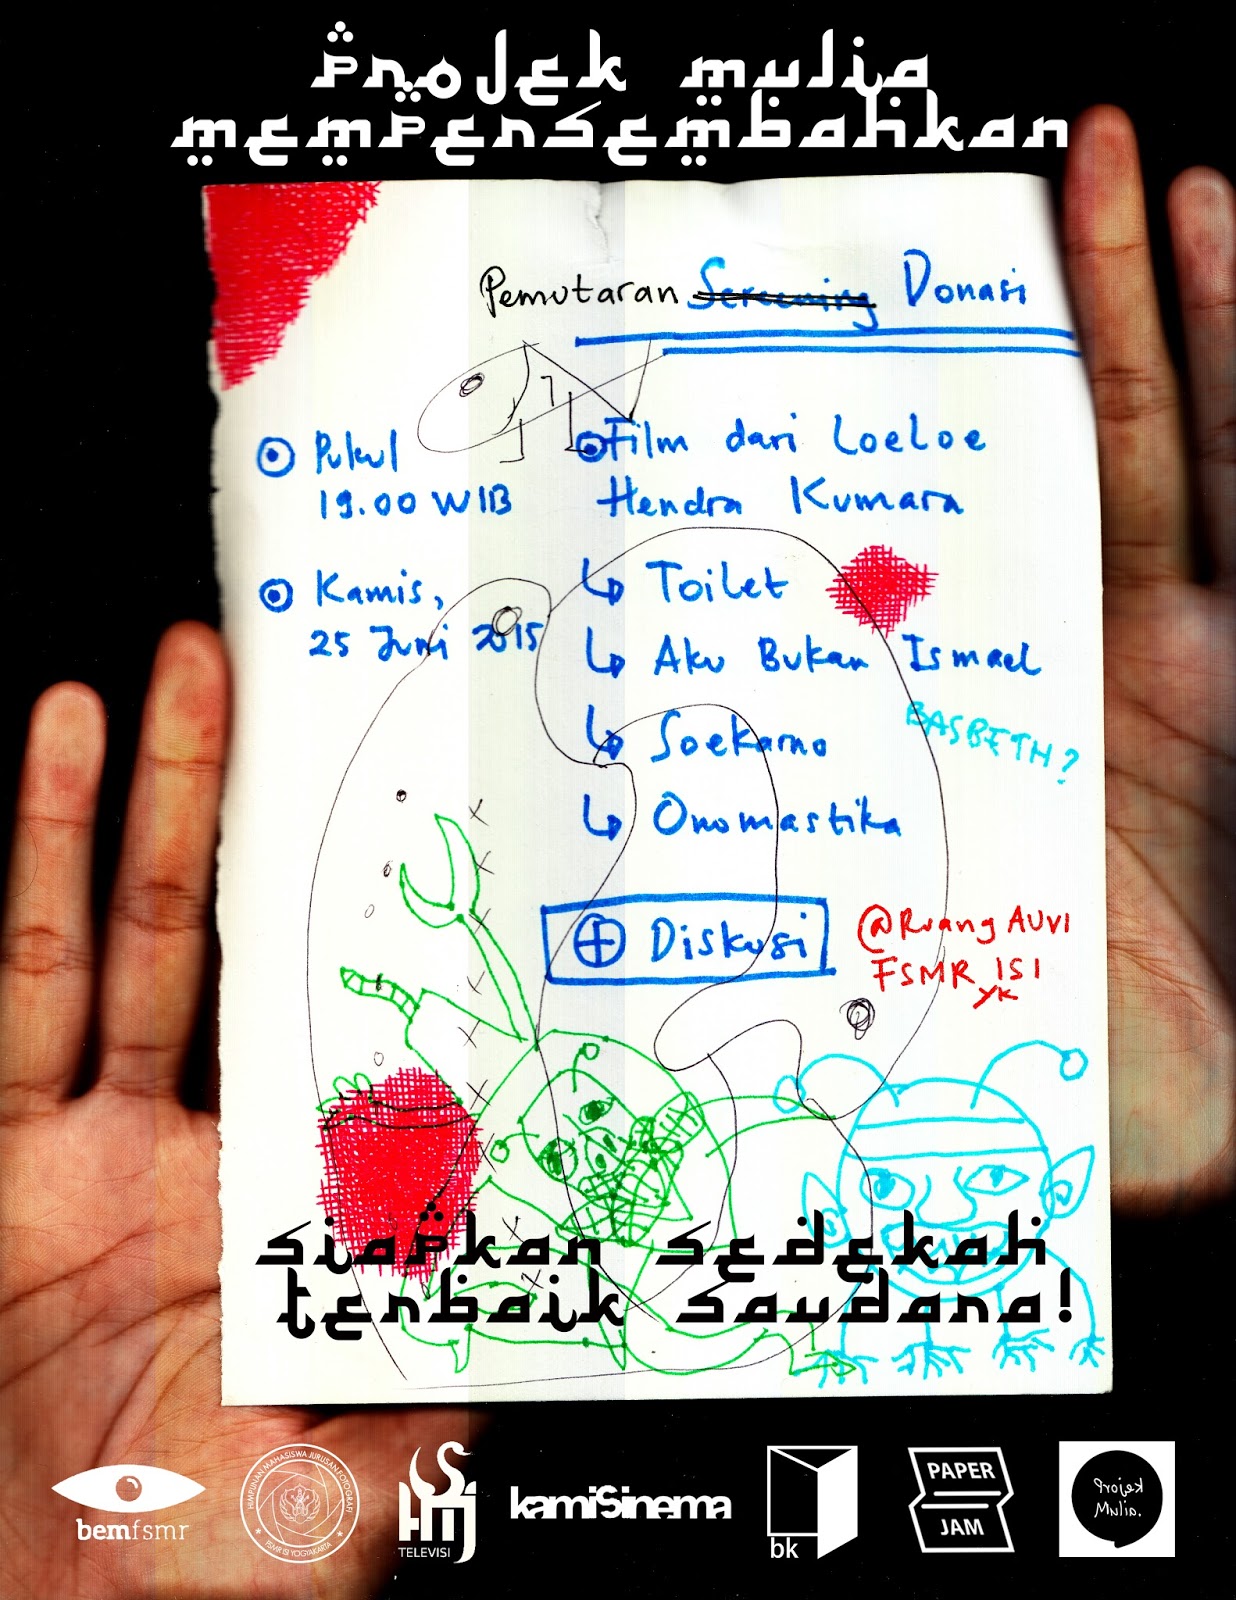 Projek Mulia
mempersembahkan
Pemutaran Screening Donasi
Pukul
19.00 WIB
Kamis,
25 Juni 2015
Film dari Loeloe
Hendra Kumara
Toilet
Aku Bukan Ismael
BASBETH?
Soekarno
Onomastika
Diskusi
@Ruang AUVI
FSMR ISI
YK
siapkan sedekah
terbaik saudara!
bemfsmr
HIMPUNAN MAHASISWA JURUSAN FOTOGRAFI
FSMR ISI YOGYAKARTA
HMJ
TELEVISI
kamiSinema
bk
PAPER
JAM
Projek
Mulia.